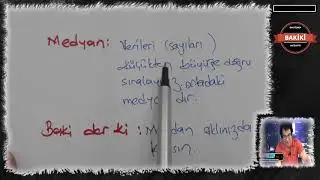 Medyan: Verileri (sayıları)
küçükten büyüğe doğru
sıralayınız ortadaki
medyandır.
Baki der ki: Medyan aklınızda
kalsın
BAKİKİ